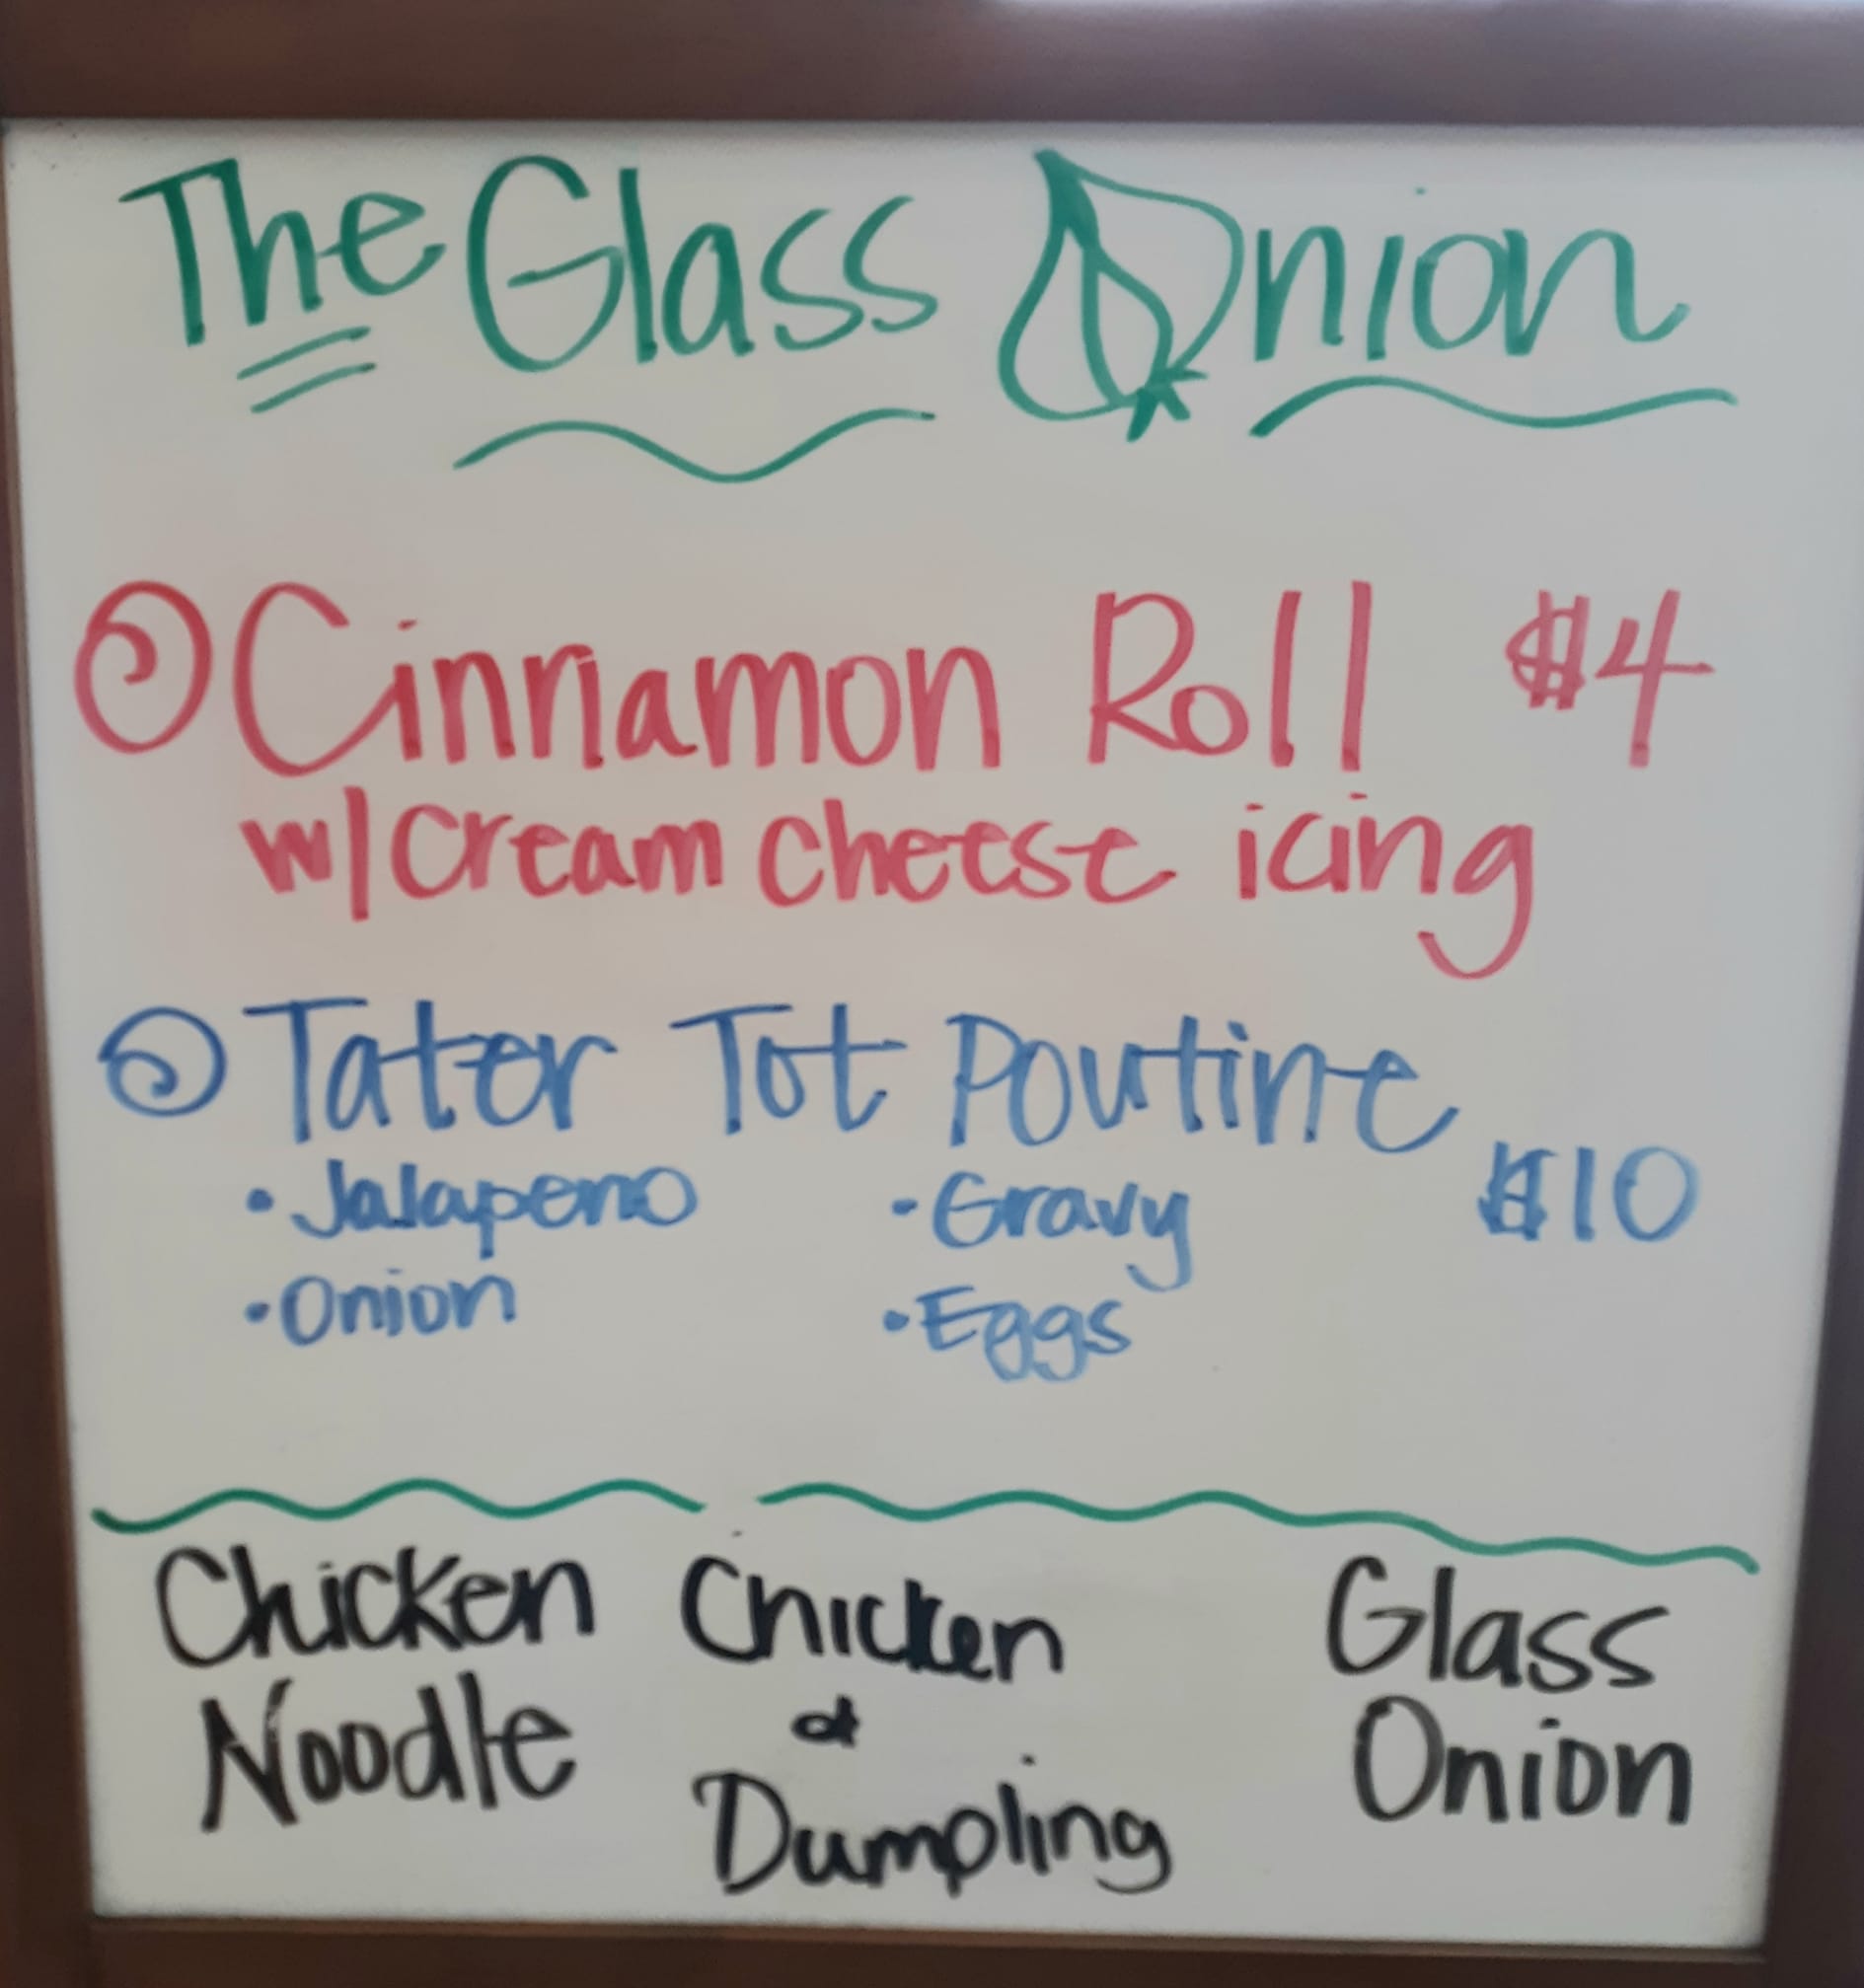 The Glass Onion
Cinnamon Roll $4
w/ Cream cheese icing
Tater Tot Poutine
$10
• Jalapeno • Gravy
• Onion • Eggs
Chicken Noodle
Chicken & Dumpling
Glass Onion